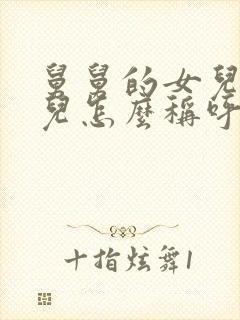 舅舅的女兒
兒怎麼稱呼
十指炫舞1